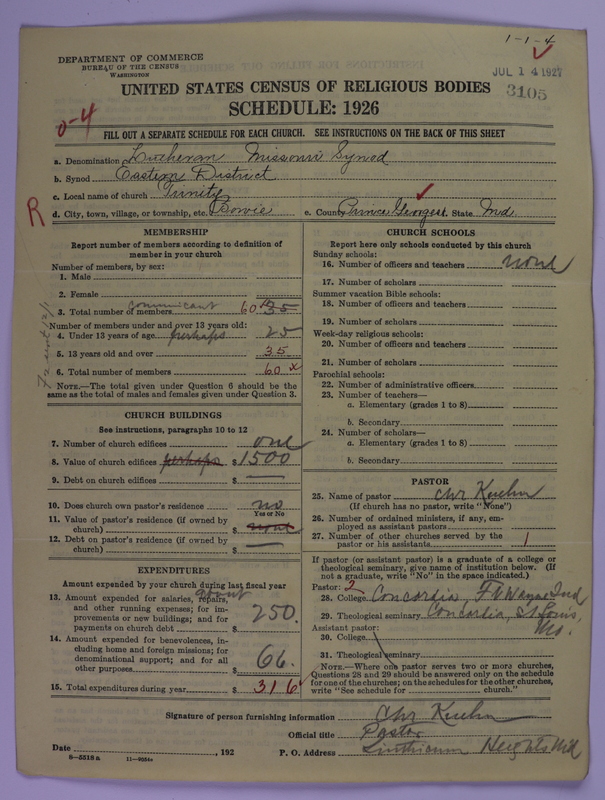 1-1-4
DEPARTMENT OF COMMERCE
BUREAU OF THE CENSUS
WASHINGTON
JUL 14 1927
3105
UNITED STATES CENSUS OF RELIGIOUS BODIES
SCHEDULE: 1926
0-4
FILL OUT A SEPARATE SCHEDULE FOR EACH CHURCH. SEE INSTRUCTIONS ON THE BACK OF THIS SHEET
a. Denomination Lutheran Missouri Synod
b. Synod Eastern District
c. Local name of church Trinity
R
d. City, town, village, or township, etc. Bowie e. County Prince Georges State Md
MEMBERSHIP
Report number of members according to definition of member in your church
Number of members, by sex:
1. Male
2. Female
communicant
3. Total number of members 60 35
Number of members under and over 13 years old:
4. Under 13 years of age perhaps 25
5. 13 years old and over 35
6. Total number of members 60 x
NOTE.—The total given under Question 6 should be the
same as the total of males and females given under Question 3.
CHURCH BUILDINGS
See instructions, paragraphs 10 to 12
7. Number of church edifices one
8. Value of church edifices perhaps $1500
9. Debt on church edifices $ —
10. Does church own pastor's residence no
Yes or No
11. Value of pastor's residence (if owned by
church) $ none
12. Debt on pastor's residence (if owned by
church) $ —
EXPENDITURES
Amount expended by your church during last fiscal year
about
13. Amount expended for salaries, repairs,
and other running expenses; for im-
provements or new buildings; and for
payments on church debt $ 250.
14. Amount expended for benevolences, in-
cluding home and foreign missions; for
denominational support; and for all
other purposes $ 66.
15. Total expenditures during year $ 316
CHURCH SCHOOLS
Report here only schools conducted by this church
Sunday schools:
16. Number of officers and teachers none
17. Number of scholars
Summer vacation Bible schools:
18. Number of officers and teachers
19. Number of scholars
Week-day religious schools:
20. Number of officers and teachers
21. Number of scholars
Parochial schools:
22. Number of administrative officers
23. Number of teachers—
a. Elementary (grades 1 to 8)
b. Secondary
24. Number of scholars—
a. Elementary (grades 1 to 8)
b. Secondary
PASTOR
25. Name of pastor Chr Kuehn
(If church has no pastor, write "None")
26. Number of ordained ministers, if any, em-
ployed as assistant pastors
27. Number of other churches served by the
pastor or his assistants 1
If pastor (or assistant pastor) is a graduate of a college or
theological seminary, give name of institution below. (If
not a graduate, write "No" in the space indicated.)
Pastor: 2
28. College Concordia, Ft Wayne Ind
29. Theological seminary Concordia, St Louis,
Mo.
Assistant pastor:
30. College
31. Theological seminary
NOTE.—Where one pastor serves two or more churches,
Questions 28 and 29 should be answered only on the schedule
for one of the churches; on the schedules for the other churches,
write "See schedule for church."
Signature of person furnishing information Chr Kuehn
Official title Pastor
Date , 192 P. O. Address Linthicum Heights Md
8-5518 a 11-9254